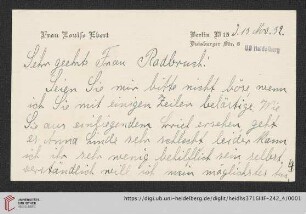 Frau Louise Ebert
Berlin W 15
Duisburger Str. 8
UB Heidelberg
Sehr geehrte Frau Radbruch!
Seien Sie mir bitte nicht böse wenn
ich Sie mit einigen Zeilen belästige
Sie aus einliegendem ersehen geht
es sehr schlecht leider kann
ich ihr sehr wenig behilflich sein selbst
verständlich will ich mein möglichstes
https://digi.ub.uni-heidelberg.de/diglit/heidhs3716IIIF-242_A/0001